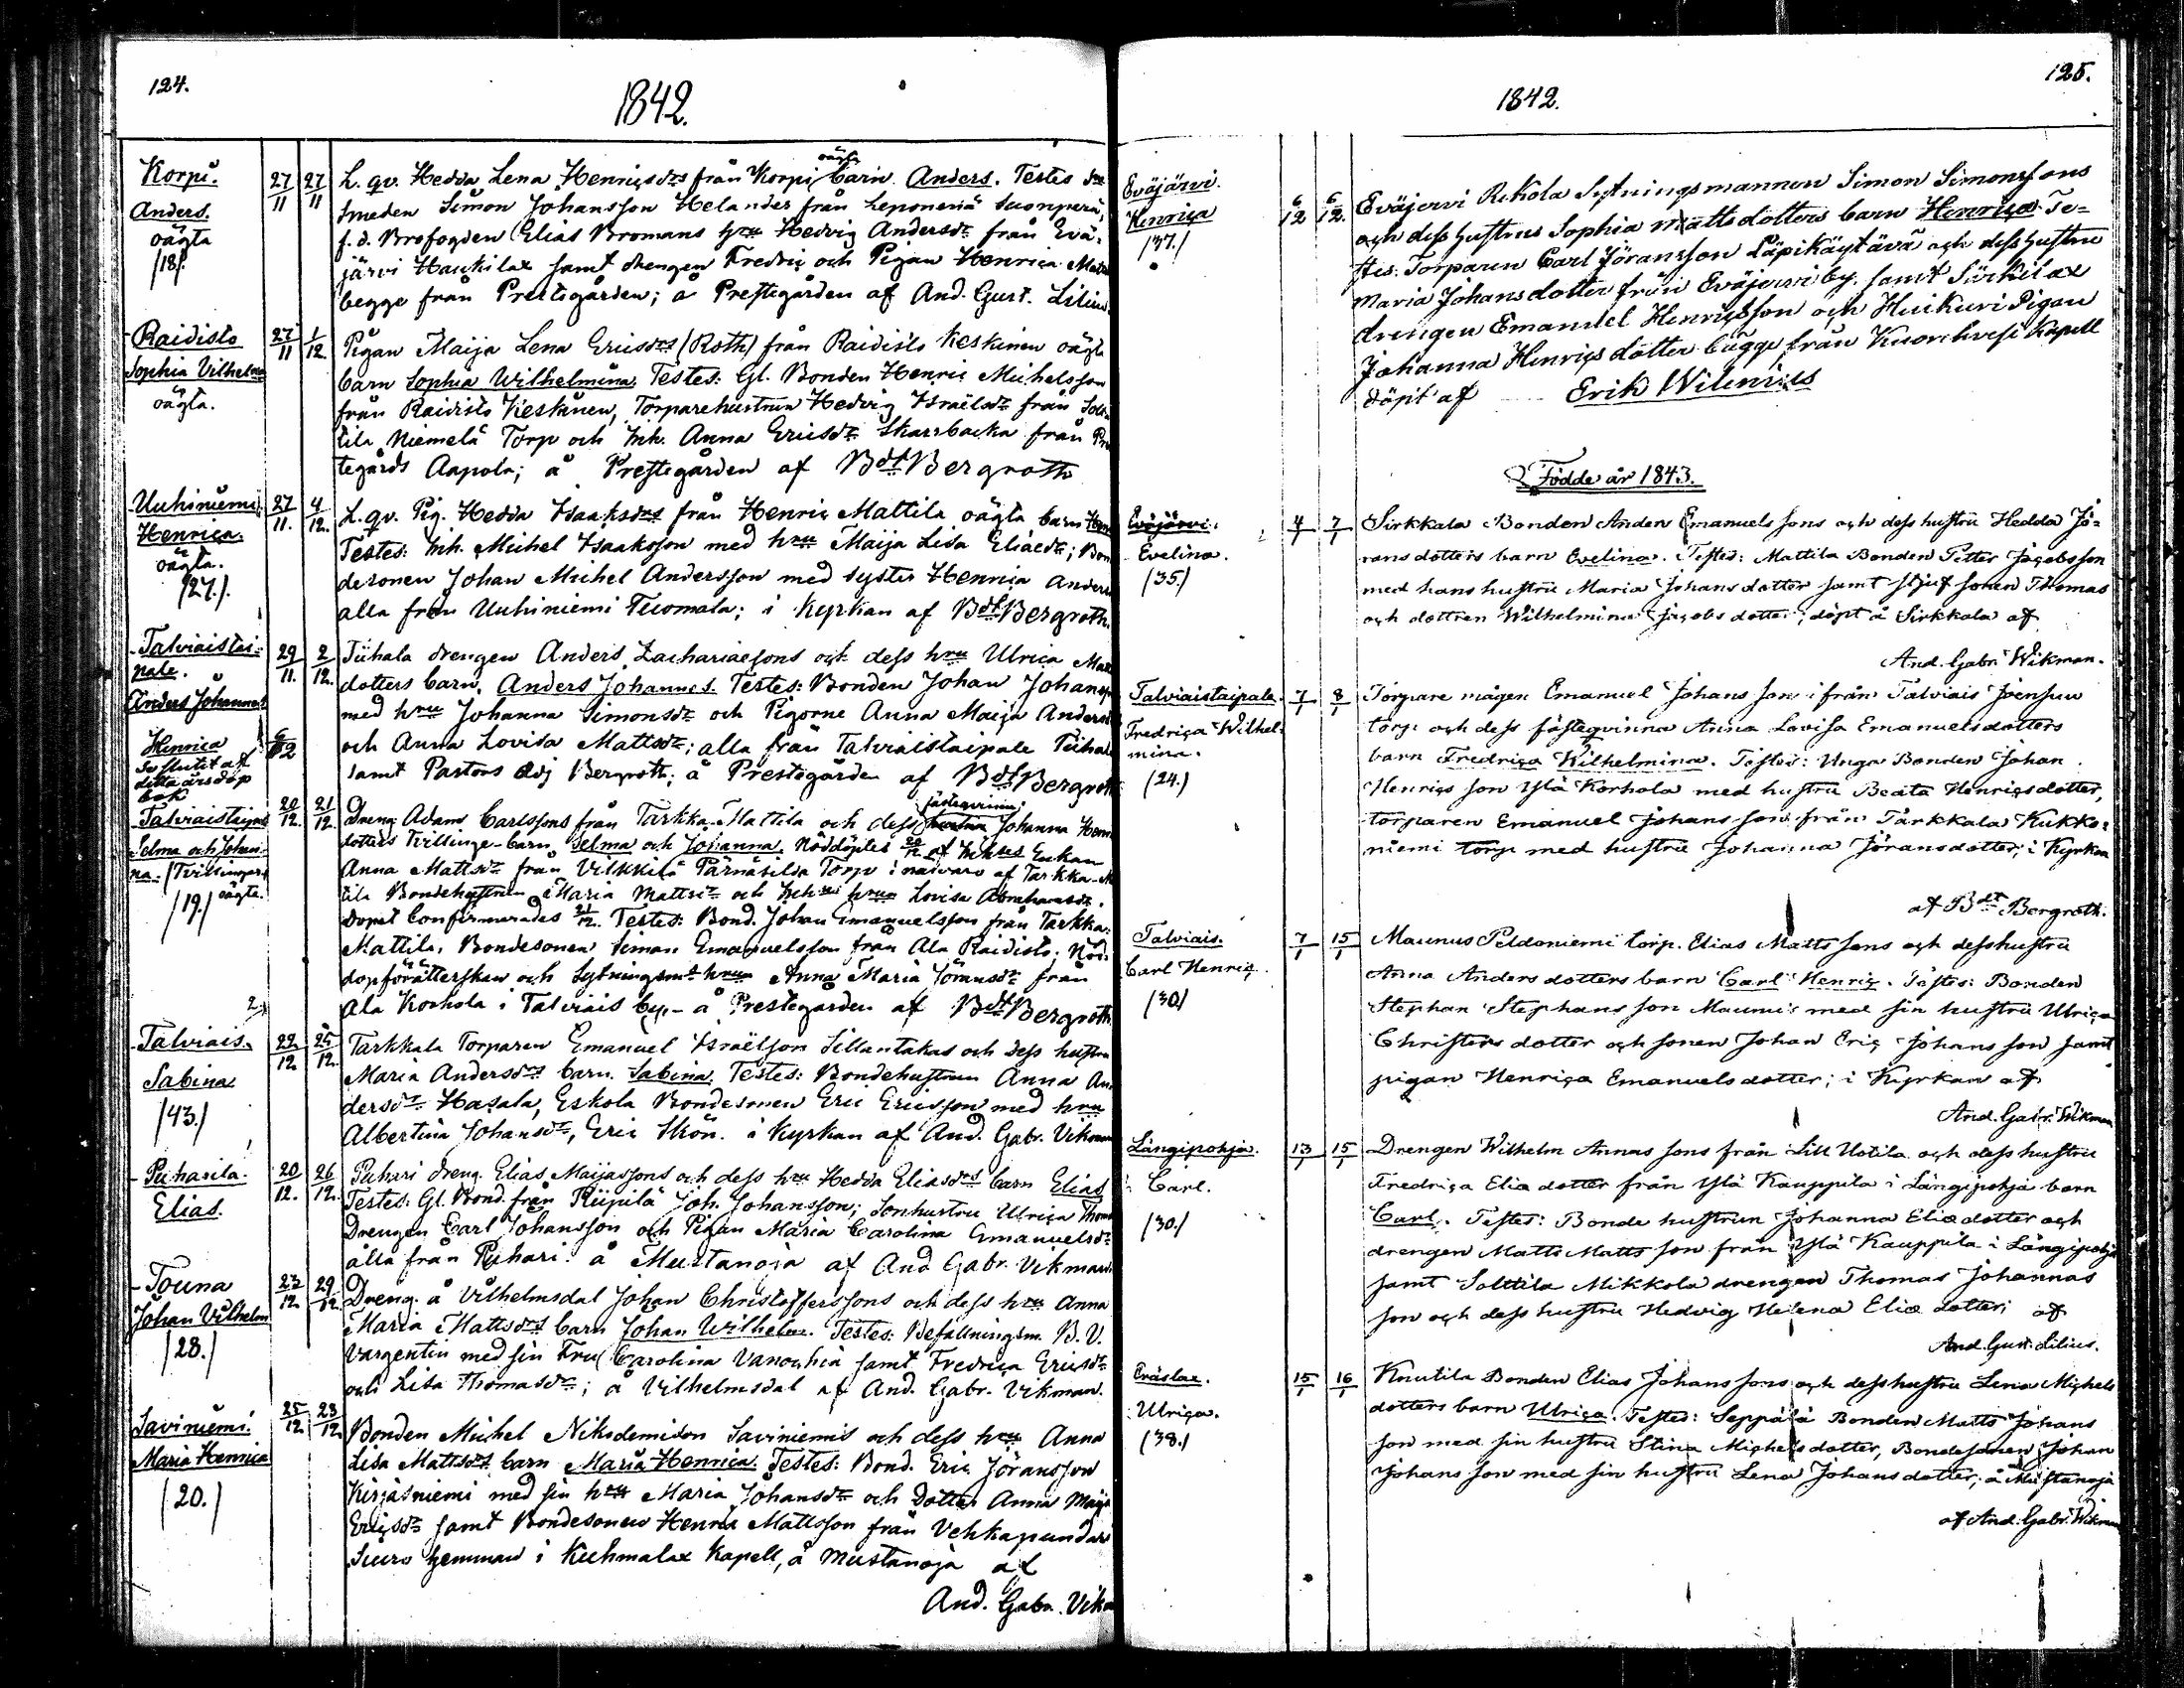 124.
1842.
Korpi.
Anders.
oägta
/18/.
27/11 27/11
L. qv. Hedda Lena Henriçsdrs från Korpi oägta barn Anders. Testes
Smeden Simon Johansson Helander från Leponeniä Suonperä,
f. d. Brofogden Elias Bromans hru Hedvig Andersdr från Evä-
järvi Haukilax samt drengen Fredriç och Pigan Henrica
begge från Prestegården; å Prestegården af And. Gust. Lilius.
Raidisto
Sophia Vilhelmina
oägta.
27/11 1/12
Pigan Maija Lena Ericsdrs (Roth) från Raidisto Keskinen oägta
barn Sophia Wilhelmina. Testes: Gl. Bonden Henric Michelsson
från Raidisto Keskinen, Torparehustrun Hedvig Israëlsdr från
tila Niemelä Torp och Inh. Anna Ericsdr Skarrbacka från
tegårds Aapola; å Prestegården af Bdt Bergroth
Uuhiniemi
Henriça.
oägta.
/27/.
27/11. 4/12.
L. qv. Pig. Hedda Isaaksdrs från Henric Mattila oägta barn
Testes: Inh. Michel Isaaksson med hru Maija Lisa Eliaedr; Bon
desonen Johan Michel Andersson med syster Henrica
alla från Uuhiniemi Tuomala; i Kyrkan af Bdt Bergroth.
Talviaistai-
pale.
Anders Johannes
29/11. 2/12.
Tiihala drengen Anders Zachariaesons och dess hru Ulrica
dotters barn Anders Johannes. Testes: Bonden Johan
med hru Johanna Simonsdr och Pigorne Anna Maija
och Anna Lovisa Mattsdr; alla från Talviaistaipale Tiihala
samt Pastors Adj Bergroth; å Prestegården af Bdt Bergroth
Henrica
Se slutet af
detta års döp
bok
6/12
Talviaistaipale
Selma och Johan-
na. /Tvillingar/
/19./ oägta.
20/12. 21/12.
Dreng. Adam Carlssons från Tarkka-Mattila och dess fästeqvinna Johanna
dotters Tvillinge-barn Selma och Johanna. Nöddöptes 20/12 af Enkan
Anna Mattsdr från Vilkkilä Pärnäsilda Torp i närvaro af Tarkka-
tila Bondehustrun Maria Mattsdr och hru Lovisa Abrahamsdr.
Dopet Confirmerades 21/12. Testes: Bond. Johan Emanuelsson från Tarkka-
Mattila, Bondesonen Simon Emanuelsson från Ala Raidisto, Nöd-
dopförätterskan och Sytningsm:s hru Anna Maria Jöransdr från
Ala Korhola i Talviais by. å Prestegården af Bdt Bergroth
Talviais.
Sabina
/43./
22/12 25/12.
Tarkkala Torparen Emanuel Israëlsson Sillantakas och dess hustru
Maria Andersdrs barn. Sabina. Testes: Bondehustrun Anna An
dersdr Hasala, Eskola Bondesonen Eric Ericsson med hru
Albertina Johansdr, Eric Skön. i Kyrkan af And. Gabr. Vikman
Puharila.
Elias.
20/12. 26/12.
Puhari dreng. Elias Maijassons och dess hru Hedda Eliasdrs barn Elias
Testes: Gl. Bond. från Riipilä Joh. Johansson; Sonhustru Ulriça
Drengen Carl Johansson och Pigan Maria Carolina Emanuelsdr
alla från Puhari. å Mustanoja af And Gabr. Vikman.
Touna
Johan Vilhelm
/28./
23/12 29/12
Dreng. å Vilhelmsdal Johan Christofferssons och dess hru Anna
Maria Mattsdrs barn Johan Wilhelm. Testes: Befallningsm. B. V.
Vargentin med sin Fru Carolina samt Fredriça Ericsdr
och Lisa Thomasdr; å Vilhelmsdal af And. Gabr. Vikman.
Saviniemi.
Maria Henrica
/20./
25/12 28/12
Bonden Michel Nikodemison Saviniemis och dess hru Anna
Lisa Mattsdrs barn Maria Henrica. Testes: Bond. Eric Jöransson
Kirjasniemi med sin hru Maria Johansdr och Dotter Anna Maija
Ericsdr samt Bondesonen Henric Mattsson från Vehkapundars
Siuro hemman i Kuhmalax Kapell, å Mustanoja af
And. Gabr. Vikm
125.
1842.
Eväjärvi.
Henriça
/37./
6/12 6/12.
Eväjervi Rekola Sytningsmannen Simon Simonssons
och dess hustrus Sophia Mattsdotters barn Henriça. Te-
stes: Torparen Carl Jöransson Läpikäytävä och dess hustru
Maria Johansdotter från Eväjervi by. samt Särkilax
drengen Emanuel Henriçsson och Huikuri Pigan
Johanna Henriçsdotter bägge från Kuorehvesi Kapell
döpt af Erik Wilenius
Födde år 1843.
Eväjärvi.
Evelina.
/35./
4/1 7/1
Sirkkala Bonden Anders Emanuelssons och dess hustru Hedda Jö-
ransdotters barn Evelina. Testes: Mattila Bonden Petter Jaçobsson
med hans hustru Maria Johansdotter samt stjuf sonen Thomas
och dottren Wilhelmina Jaçobsdotter; döpt å Sirkkala af
And. Gabr. Wikman.
Talviaistaipale.
Fredriça Wilhel-
mina.
/24./
7/1 8/1
Torpare mågen Emanuel Johansson ifrån Talviais Joensuu
torp och dess fästeqvinna Anna Lovisa Emanuelsdotters
barn Fredriça Wilhelmina. Testes: Unga Bonden Johan
Henriçsson Ylä Korhola med hustru Beata Henriçsdotter,
torparen Emanuel Johansson från Tarkkala Kukko-
niemi torp med hustru Johanna Jöransdotter, i Kyrkan
af Bdt Bergroth.
Talviais.
Carl Henriç.
/30/
7/1 15/1
Maunus Peldoniemi torp. Elias Mattssons och dess hustru
Anna Andersdotters barn Carl Henriç. Testes: Bonden
Stephan Stephansson Maunus med sin hustru Ulriça
Christersdotter och sonen Johan Eriç Johansson samt
pigan Henriça Emanuelsdotter; i Kyrkan af
And. Gabr. Wikman
Längipohja.
Carl.
/30./
13/1 15/1
Drengen Wilhelm Annassons från Lill Uotila och dess hustru
Fredriça Eliædotter från Ylä Kauppila i Längipohja barn
Carl. Testes: Bonde hustrun Johanna Eliædotter och
drengen Matts Mattsson från Ylä Kauppila i Längipohja
samt Solttila Mikkola drengen Thomas Johannas
son och dess hustru Hedvig Helena Eliædotter; af
And. Gust. Lilius.
Eräslax.
Ulriça.
/38./
15/1 16/1
Knutila Bonden Elias Johanssons och dess hustru Lena Michels
dotters barn Ulriça. Testes: Seppälä Bonden Matts Johans
son med sin hustru Stina Michelsdotter, Bondesonen Johan
Johansson med sin hustru Lena Johansdotter; å Mustanoja
af And. Gabr. Wikman